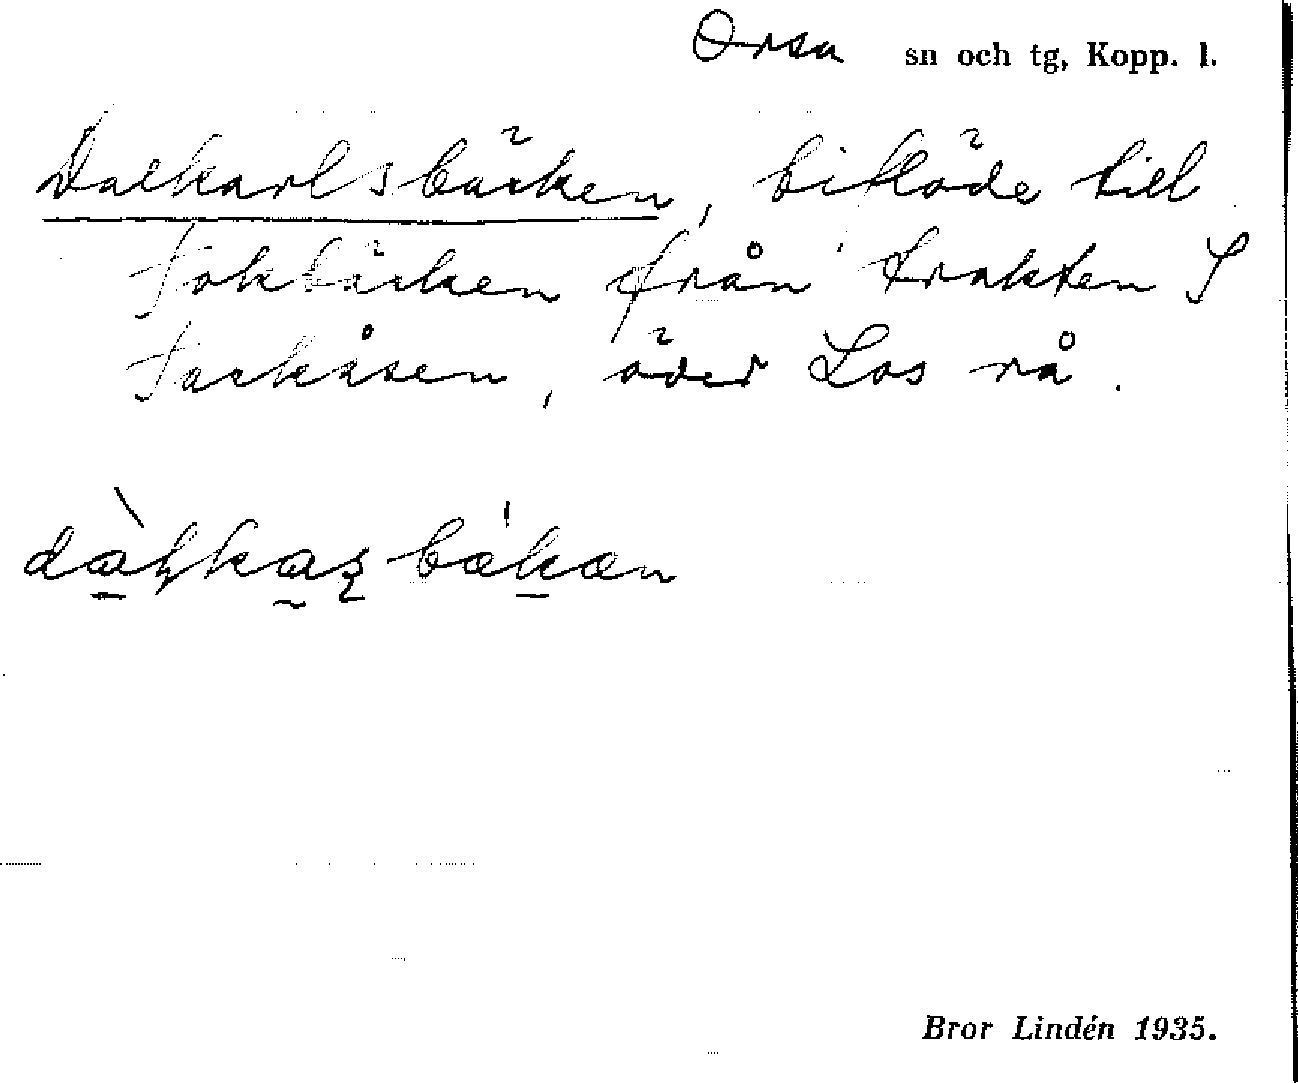 Orsa sn och tg, Kopp. l.
Dalkarlsbäcken, biflöde till
från trakten S
öder Los rå.
Bror Lindén 1935.